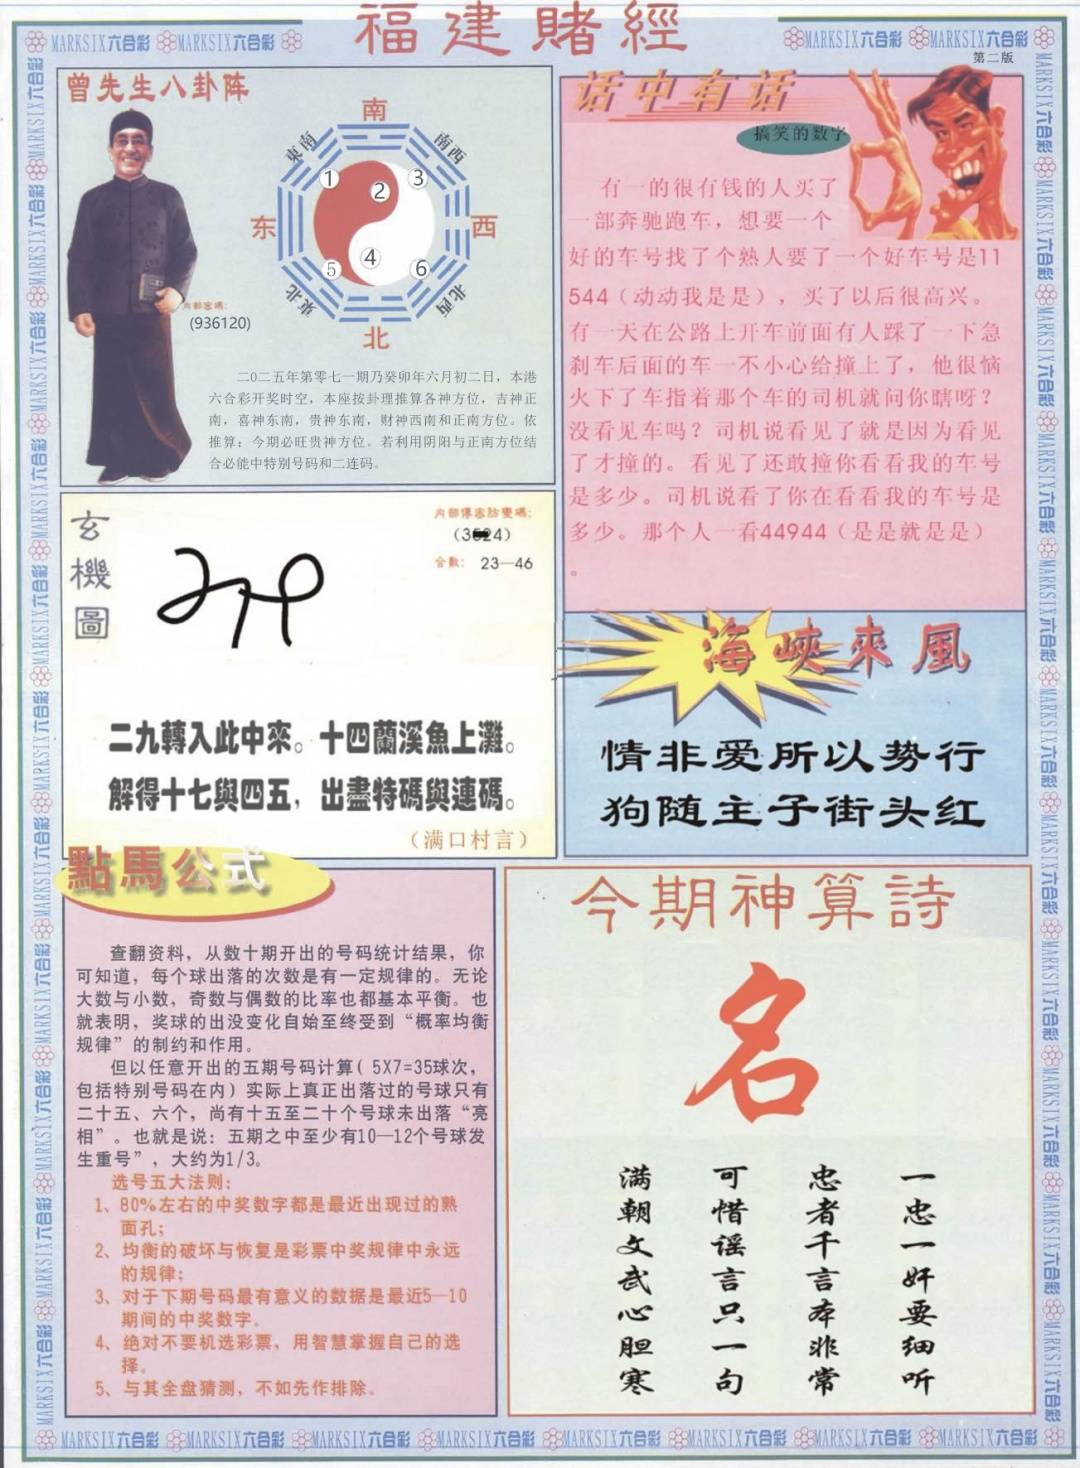 福建賭經
MARKSIX六合彩 MARKSIX六合彩
MARKSIX六合彩 MARKSIX六合彩
第二版
曾先生八卦阵
南
東南
南西
1
2
3
东
西
4
5
6
東北
北西
北
内部密碼：
(936120)
二0二五年第零七一期乃癸卯年六月初二日，本港
六合彩开奖时空，本座按卦理推算各神方位，吉神正
南，喜神东南，贵神东南，财神西南和正南方位。依
推算：今期必旺贵神方位。若利用阴阳与正南方位结
合必能中特别号码和二连码。
话中有话
搞笑的数字
有一的很有钱的人买了
一部奔驰跑车，想要一个
好的车号找了个熟人要了一个好车号是11
544（动动我是是），买了以后很高兴。
有一天在公路上开车前面有人踩了一下急
刹车后面的车一不小心给撞上了，他很恼
火下了车指着那个车的司机就问你瞎呀？
没看见车吗？司机说看见了就是因为看见
了才撞的。看见了还敢撞你看看我的车号
是多少。司机说看了你在看看我的车号是
多少。那个人一看44944（是是就是是）
。
玄機圖
内部傳密防變碼：
(3524)
合數： 23—46
二九轉入此中來。十四蘭溪魚上灘。
解得十七與四五，出盡特碼與連碼。
（满口村言）
海峽來風
情非爱所以势行
狗随主子街头红
點馬公式
查翻资料，从数十期开出的号码统计结果，你
可知道，每个球出落的次数是有一定规律的。无论
大数与小数，奇数与偶数的比率也都基本平衡。也
就表明，奖球的出没变化自始至终受到“概率均衡
规律”的制约和作用。
但以任意开出的五期号码计算( 5X7=35球次，
包括特别号码在内）实际上真正出落过的号球只有
二十五、六个，尚有十五至二十个号球未出落“亮
相”。也就是说：五期之中至少有10—12个号球发
生重号”，大约为1/3。
选号五大法则：
1、80%左右的中奖数字都是最近出现过的熟
面孔；
2、均衡的破坏与恢复是彩票中奖规律中永远
的规律；
3、对于下期号码最有意义的数据是最近5—10
期间的中奖数字。
4、绝对不要机选彩票，用智慧掌握自己的选
择。
5、与其全盘猜测，不如先作排除。
今期神算詩
名
一忠一奸要细听
忠者千言本非常
可惜谣言只一句
满朝文武心胆寒
MARKSIX六合彩 MARKSIX六合彩 MARKSIX六合彩 MARKSIX六合彩 MARKSIX六合彩 MARKSIX六合彩 MARKSIX六合彩 MARKSIX六合彩